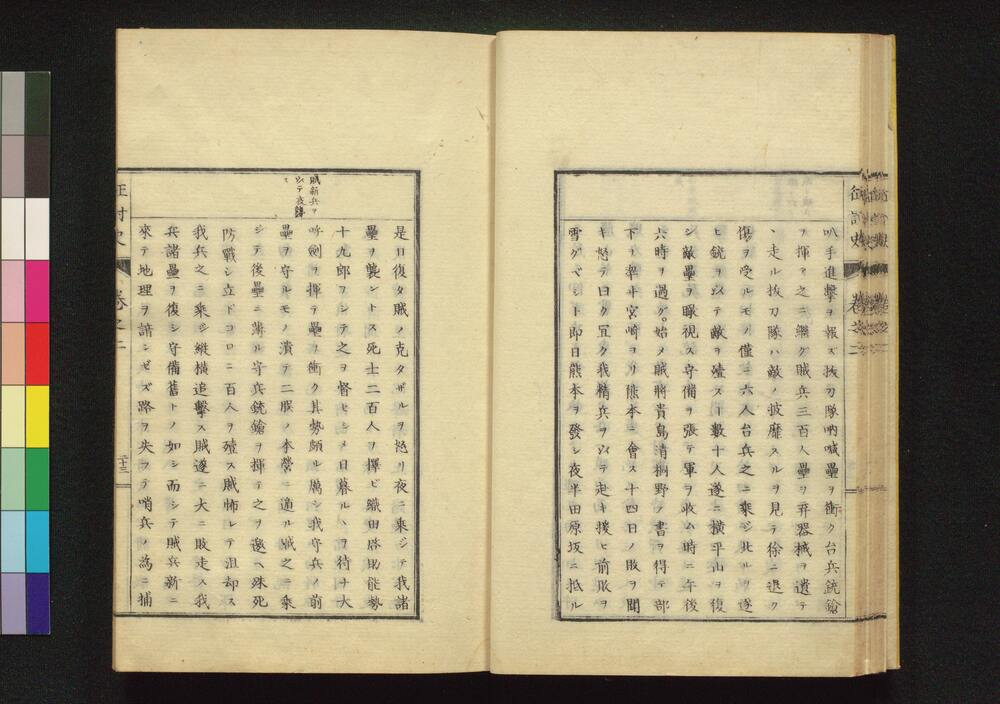 叭手進擊ヲ報ズ抜刀隊吶喊壘ヲ衝ク台兵銃鎗
ヲ揮フ之ニ繼グ賊兵三百人壘ヲ弃器械ヲ遺テ
ヽ走ル抜刀隊ハ敵ノ披靡スルヲ見テ徐ニ退ク
傷ヲ受ルモノ僅ニ六人台兵之ニ乘ジ北ルヲ逐
ヒ銃ヲ以テ敵ヲ殪スヿ數十人遂ニ横平山ヲ復
シ敵壘ヲ瞰視ス守備ヲ張テ軍ヲ收ム時ニ午後
六時ヲ過グ。始メ賊將貴島清桐野ノ書ヲ得テ部
下ヲ率井宮崎ヨリ熊本ニ會ス十四日ノ敗ヲ聞
キ怒テ曰ク宜ク我精兵ヲ以テ走キ援ヒ前敗ヲ
雪グベシト即日熊本ヲ發シ夜半田原坂ニ抵ル
征討史 卷之二
賊新兵ヲ
以テ夜襲
ス
是日復タ賊ノ克タザルヲ怒リ夜ニ乘ジテ我諸
壘ヲ襲ントス死士二百人ヲ擇ビ織田啓助能勢
十九郎ヲシテ之ヲ督セシメ日暮ルヽヲ待ナ大
呼劍ヲ揮テ壘ヲ衝ク其勢頗ル厲シ我守兵ノ前
壘ヲ守ルモノ潰テ二股ノ本營ニ遁ル賊之ニ乘
ジテ後壘ニ薄ル守兵銃鎗ヲ揮テ之ヲ邀ヘ殊死
防戰シ立ドコロニ百人ヲ殪ス賊怖レテ沮却ス
我兵之ニ乘ジ縱横追擊ス賊遂ニ大ニ敗走ス我
兵諸壘ヲ復シ守備舊トノ如シ而シテ賊兵新ニ
來テ地理ヲ諳ンゼズ路ヲ失フテ哨兵ノ為ニ捕
征討史 卷之二 二十三